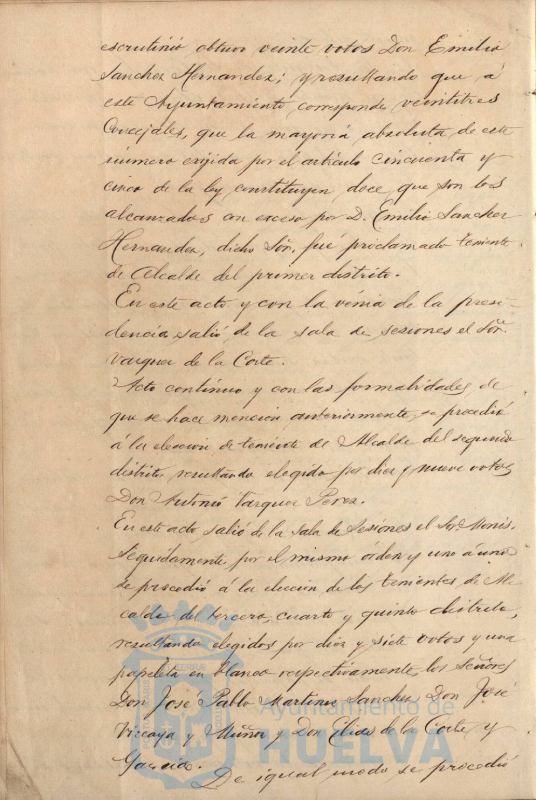 escrutinio obtuvo veinte votos Don Emilio
Sanchez Hernandez; y resultando que á
este Ayuntamiento corresponde veintitres
Concejales, que la mayoria absoluta de este
número exijida por el artículo cincuenta y
cinco de la ley constituyen doce que son los
alcanzados con exceso por D. Emilio Sanchez
Hernandez, dicho Sor. fué proclamado teniente
de Alcalde del primer distrito.
En este acto y con la venia de la presi-
dencia, salió de la sala de sesiones el Sor.
Vazquez de la Corte.
Acto contínuo y con las formalidades de
que se hace mencion anteriormente, se procedió
á la eleccion de teniente de Alcalde del segundo
distrito, resultando elegido por diez y nueve votos
Don Antonio Vazquez Perez.
En este acto salió de la sala de Sesiones el Sor. Monis.
Seguidamente, por el mismo orden y uno á uno
se procedió á la eleccion de los tenientes de Al
calde del tercero, cuarto y quinto distrito,
resultando elegidos por diez y siete votos y una
papeleta en blanco respectivamente, los Señores
Don José Pablo Martinez Sanchez, Don José
Vizcaya y Muñoz y Don Elias de la Corte y
Garcia.
De igual modo se procedió
Ayuntamiento de
HUELVA